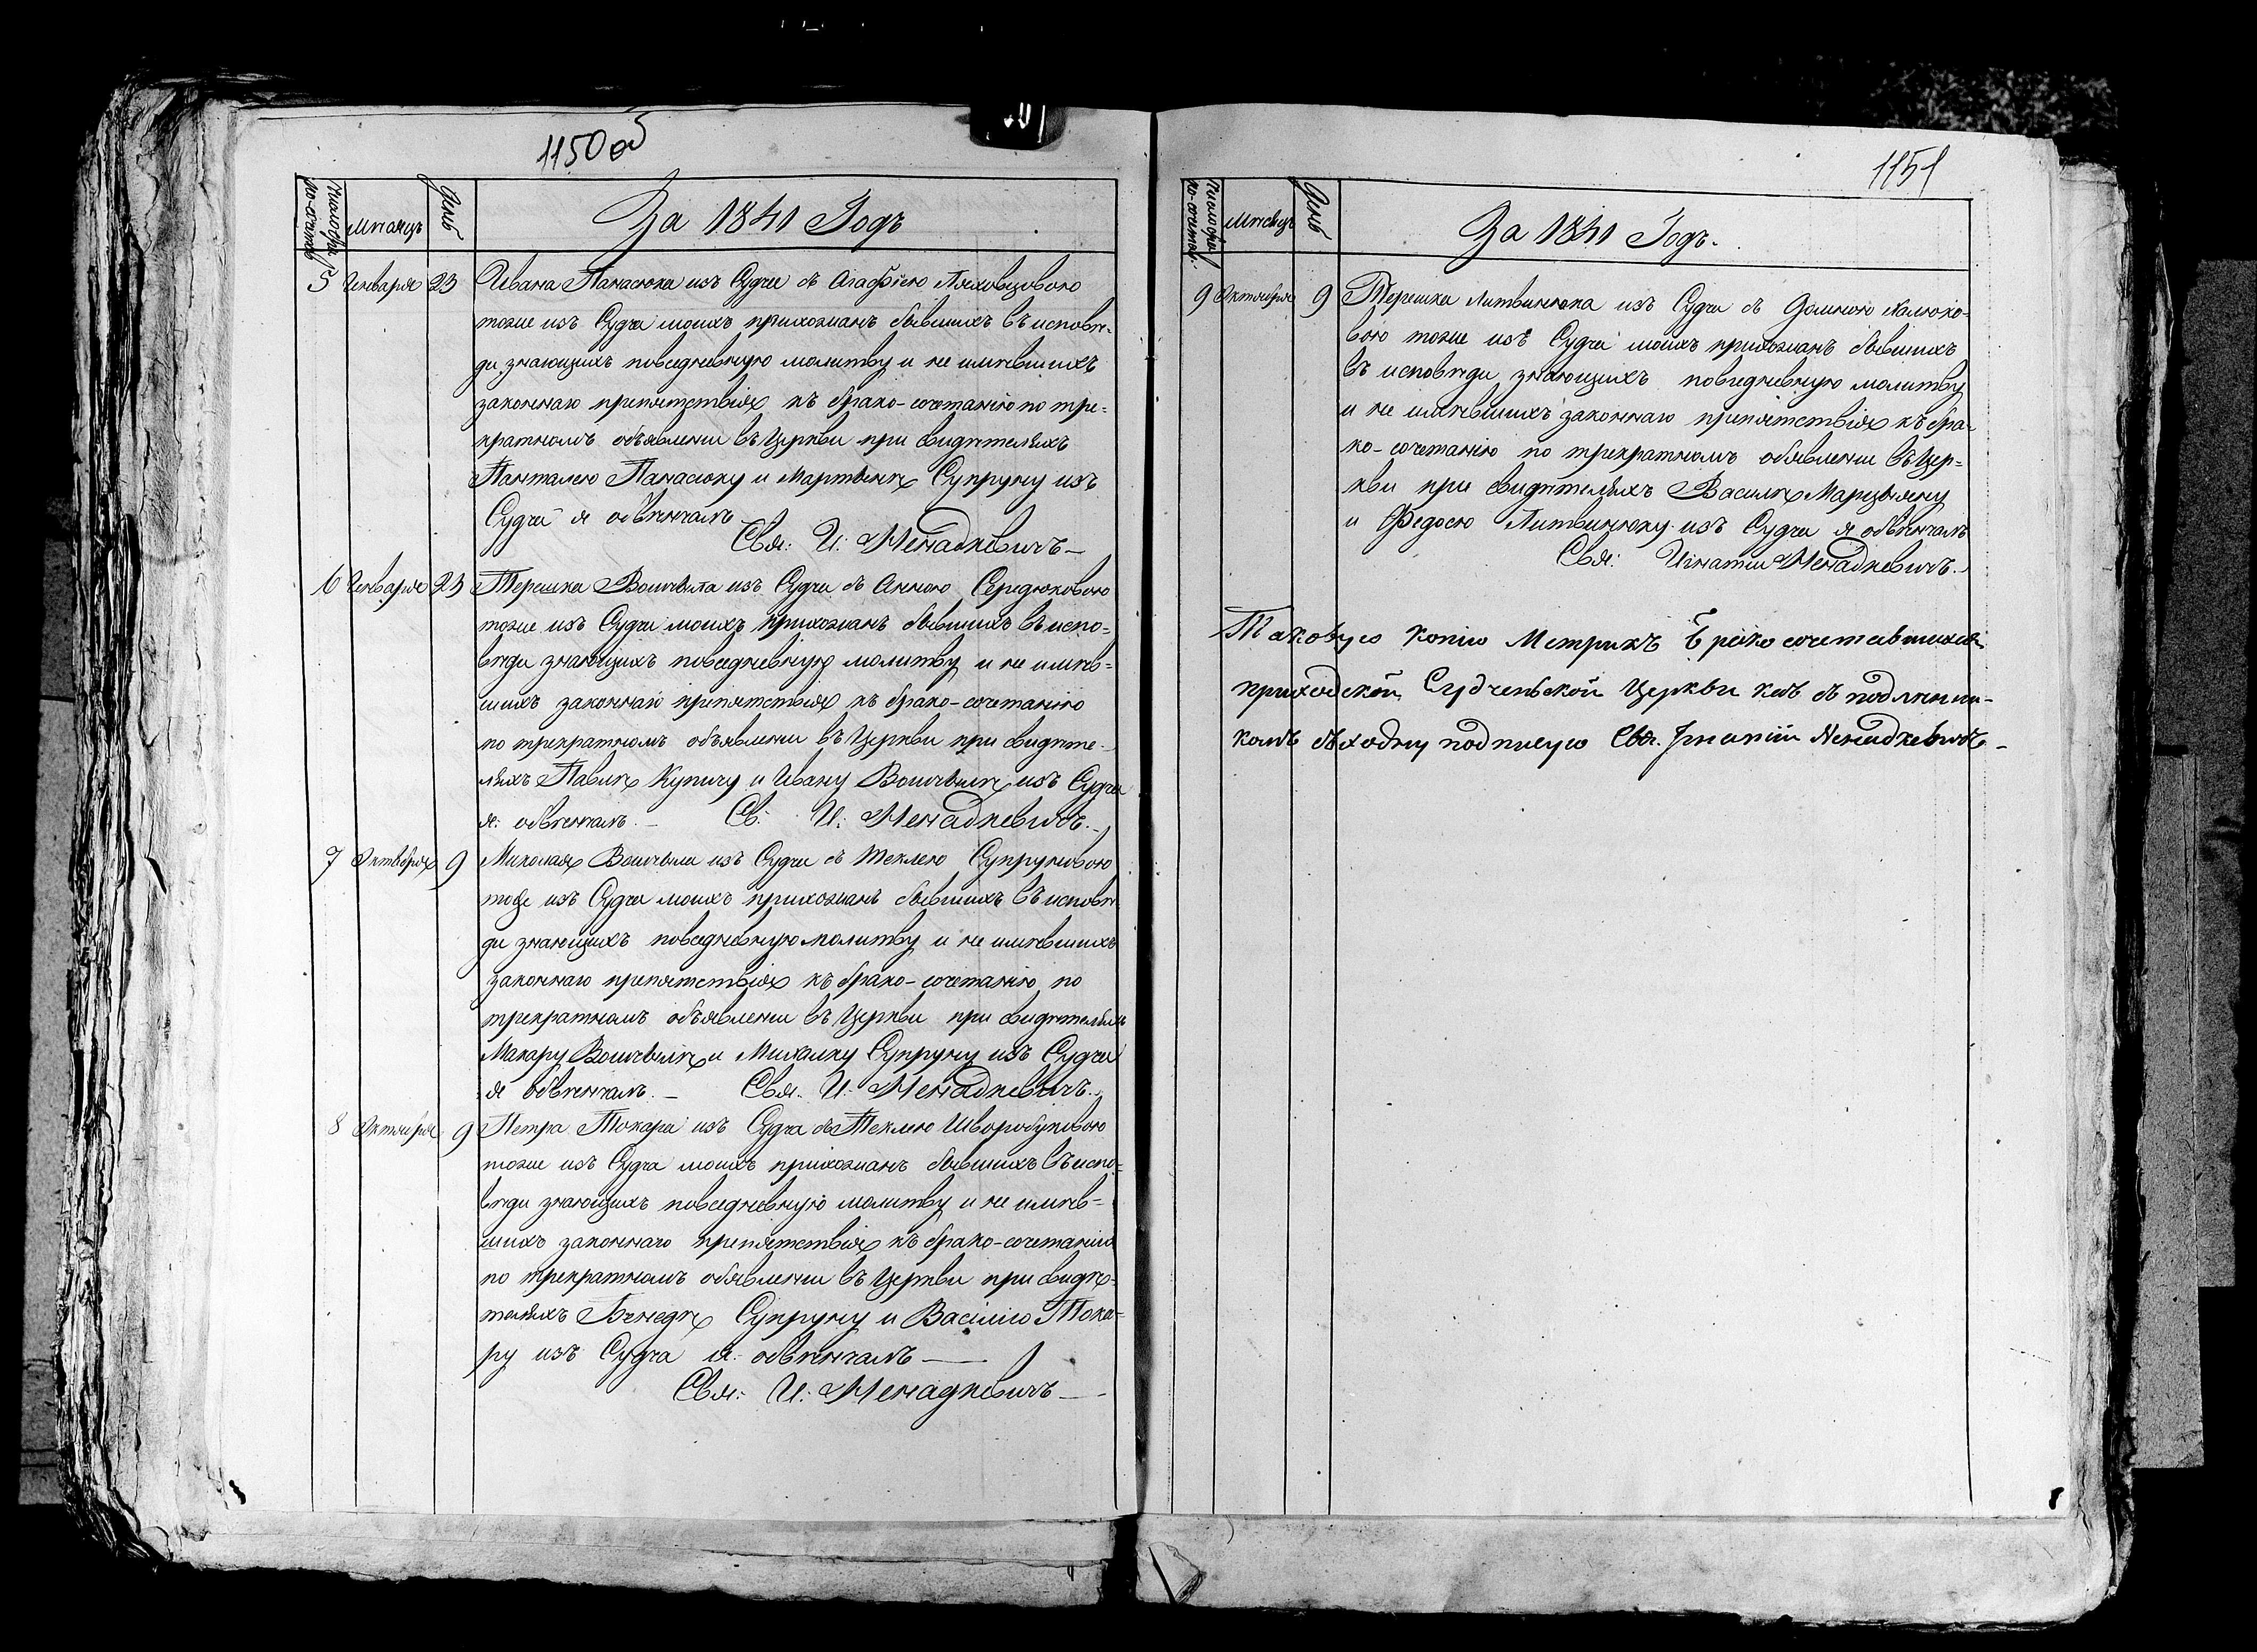 1150 об
Число бра-
ко-сочетав:
Мѣсяцъ
День
За 1841 Годъ
5 Января 23 Ивана Панасюка изъ Судча съ Агафiею Ляховцовою
тоже изъ Судча моихъ прихожанъ бывшихъ въ исповѣ-
ди знающихъ повседневную молитву и не имѣвшихъ
законнаго препятствія къ брако-сочетанію по тре-
кратномъ объявленіи въ Церкви при свидѣтеляхъ
Панталею Панасюку и Мартынѣ Супруну изъ
Судча я обвѣнчалъ
Свя: И: Ненадкевичъ
6 Января 23 Терешка Воличыла изъ Судча съ Анною Середюковою
тоже изъ Судча моихъ прихожанъ бывшихъ въ испо-
вѣди знающихъ повседневную молитву и не имѣв-
шихъ законнаго препятствія къ брако-сочетанію
по трекратномъ объявленіи въ Церкви при свидѣте-
ляхъ Павлѣ Купичу и Ивану Воличылѣ изъ Судча
я: обвѣнчалъ. Св: И: Ненадкевичъ.
7 Октября 9 Миколая Воличыла изъ Судча съ Теклею Супруновою
тоже изъ Судча моихъ прихожанъ бывшихъ въ исповѣ-
ди знающихъ повседневную молитву и не имѣвшихъ
законнаго препятствія къ брако-сочетанію по
трекратномъ объявленіи въ Церкви при свидѣтеляхъ
Макару Воличылѣ и Михалку Супруну изъ Судча
я обвѣнчалъ. Свя. И: Ненадкевичъ.
8 Октября 9 Петра Токаря изъ Судча съ Теклею Шворобуковою
тоже изъ Судча моихъ прихожанъ бывшихъ въ испо-
вѣди знающихъ повседневную молитву и не имѣв-
шихъ законнаго препятствія къ брако-сочетанію
по трекратномъ объявленіи въ Церкви при свидѣ-
теляхъ Бенедѣ Супруну и Василію Тока-
ру изъ Судча я: обвѣнчалъ
Свя: И: Ненадкевичъ
1151
Число бра-
ко-сочетав:
Мѣсяцъ
День
За 1841 Годъ.
9 Октября 9 Терешка Литвинюка изъ Судча съ Домною Халюко-
вою тоже изъ Судча моихъ прихожанъ бывшихъ
въ исповѣди знающихъ повседневную молитву
и не имѣвшихъ законнаго препятствія къ бра-
ко-сочетанію по трекратномъ объявленіи въ Цер-
кви при свидѣтеляхъ Василѣ Марцыняну
и Федосю Литвинюку изъ Судча я обвѣнчалъ
Свя: Игнатій Ненадкевичъ.
Таковую копію Метрикъ Бракосочетавшихся
приходской Судченьской Церкви какъ съ подлинни-
комъ сходну подписую Свя. Игнатій Ненадкевичъ